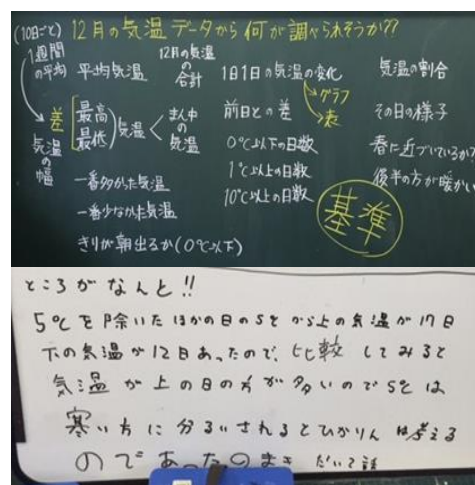 (10日ごと) 12月の気温データから何が調べられそうか??
1週間の平均
平均気温
12月の気温の合計
1日1日の気温の変化
グラフ
表
気温の割合
差
最高
最低
気温
まん中の気温
前日との差
その日の様子
気温の幅
0℃以下の日数
春に近づいているか?
1℃以上の日数
後半の方が暖かい
一番多かった気温
10℃以上の日数
一番少なかった気温
基準
きりが朝出るか(0℃以下)
ところがなんと!!
5℃を除いたほかの日の5℃から上の気温が17日
下の気温が12日あったので、比較してみると
気温が上の日の方が多いので5℃は
寒い方に分るいされるとひかりんは考える
のであったのまき